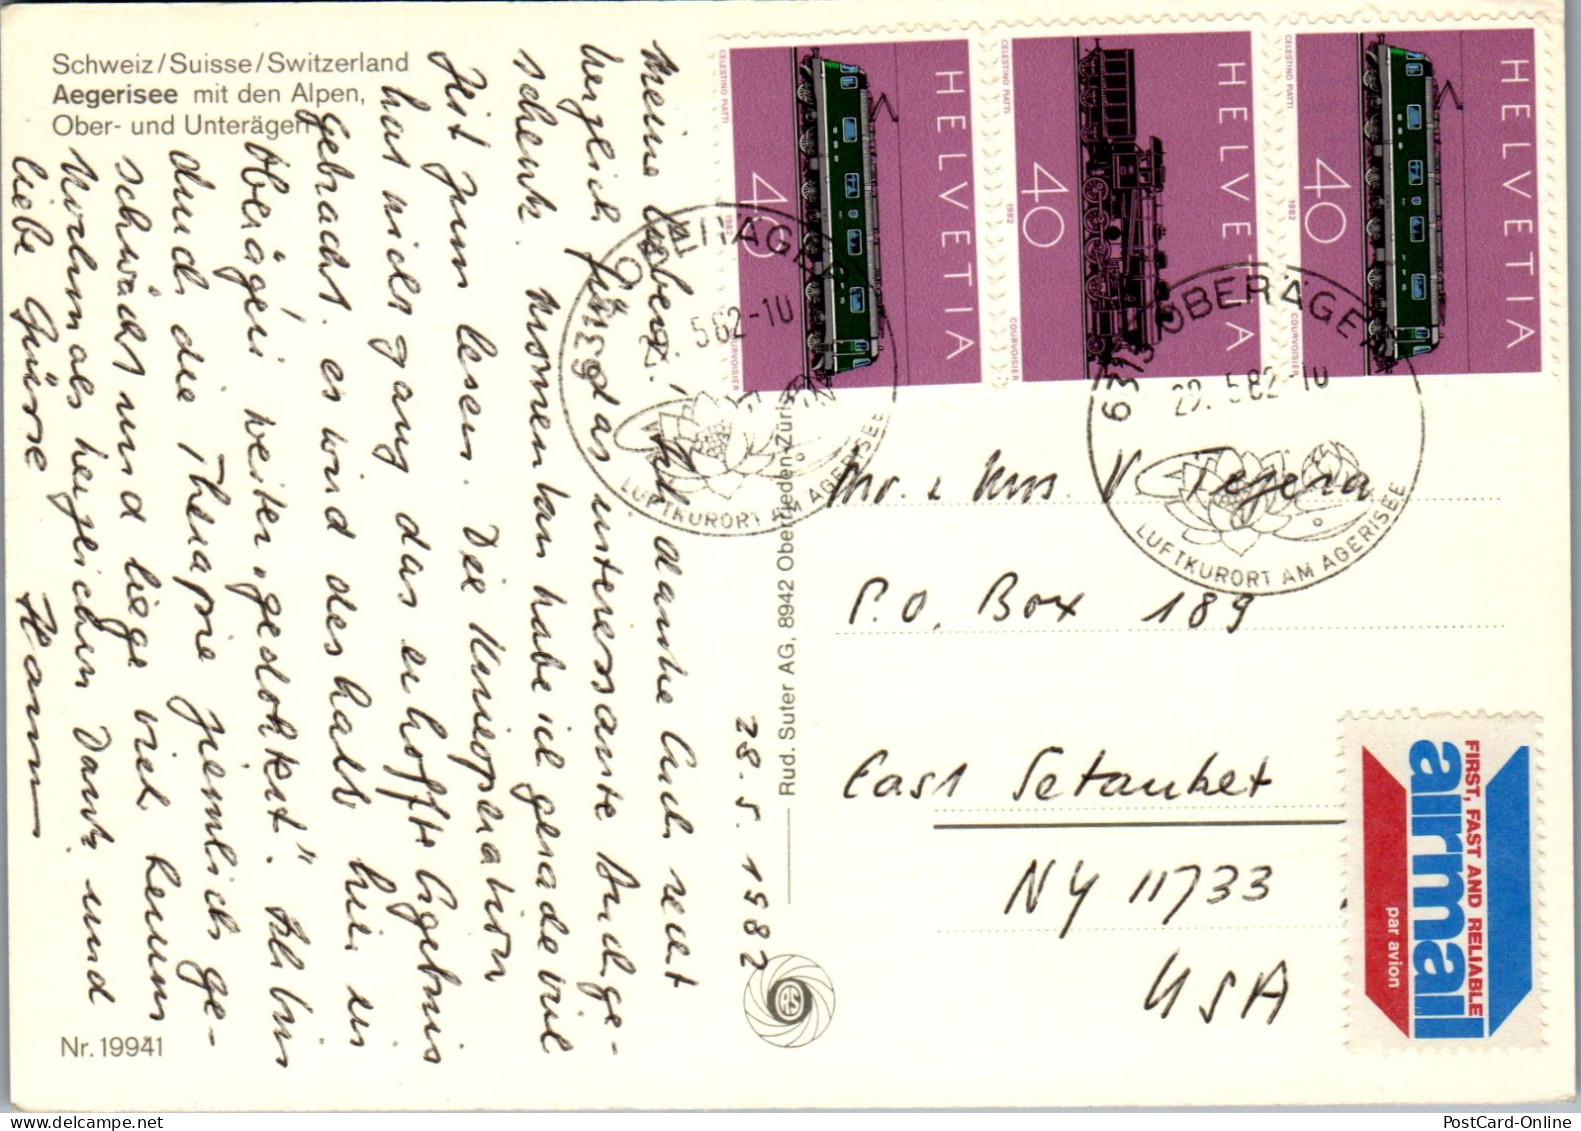 Schweiz/Suisse/Switzerland
Aegerisee mit den Alpen,
Ober- und Unterägeri
Meine Lieben! Ich danke Euch recht
herzlich für das interessante Buchge-
schenk. Momentan habe ich gerade viel
Zeit zum lesen. Die Knieoperation
hat nicht ganz das erhoffte Ergebnis
gebracht. es wird deshalb hier in
Oberägeri weiter "gedoktert". Ich bin
durch die Therapie ziemlich ge-
schwächt und liege viel herum
Nochmals herzlichen Dank und
liebe Grüsse
Hanni
28.5.1982
Nr. 19941
Rud. Suter AG, 8942 Oberrieden-Zürich
RS
HELVETIA
40
1982
CELESTINO PIATTI
COURVOISIER
HELVETIA
40
1982
CELESTINO PIATTI
COURVOISIER
HELVETIA
40
1982
CELESTINO PIATTI
COURVOISIER
6315 OBERÄGERI
5.82-10
LUFTKURORT AM ÄGERISEE
6315 OBERÄGERI
29.5.82-10
LUFTKURORT AM ÄGERISEE
Mr. & Mrs. V. Tejera
P.O. Box 189
East Setauket
NY 11733
USA
FIRST, FAST AND RELIABLE
airmail
par avion
PostCard-Online